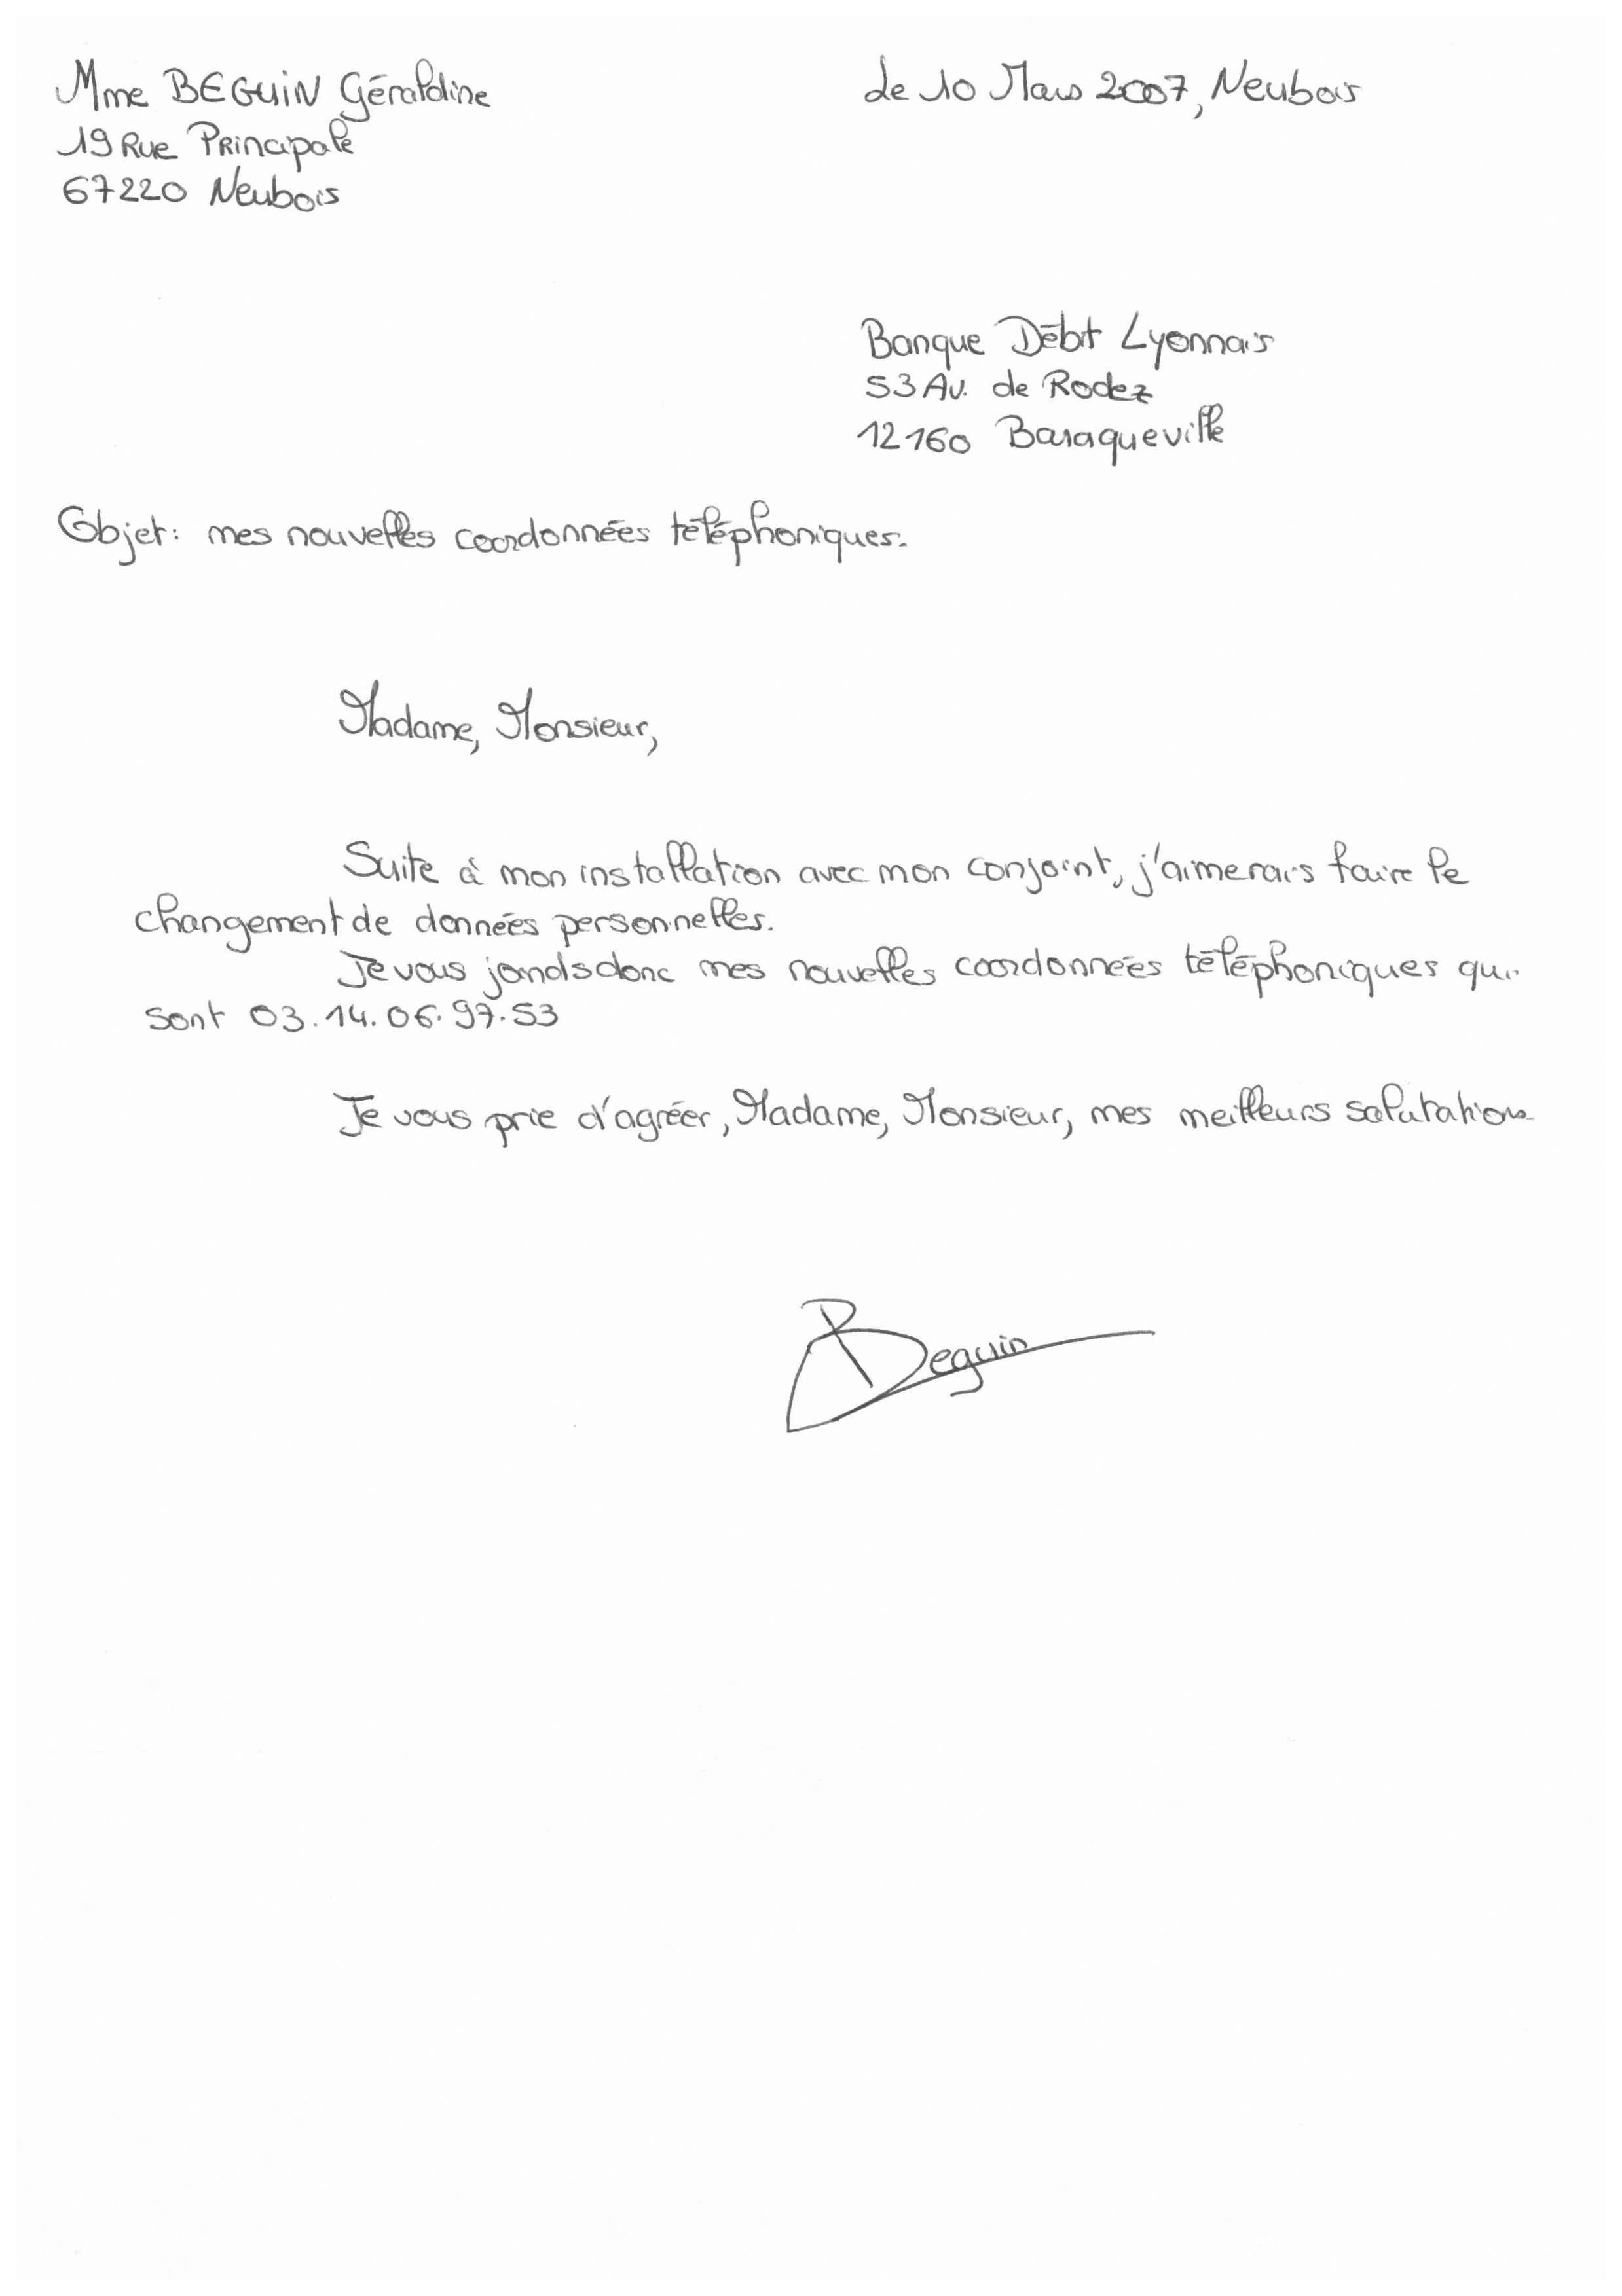 Mme BEGUIN Géraldine
19 Rue Principale
67220 Neubois
Le 10 Mars 2007, Neubois
Banque Débit Lyonnais
53 Av. de Rodez
12160 Baraqueville
Objet: mes nouvelles coordonnées téléphoniques.
Madame, Monsieur,
Suite à mon installation avec mon conjoint, j'aimerais faire le
changement de données personnelles.
Je vous joinds donc mes nouvelles coordonnées téléphoniques qui
sont 03.14.06.97.53
Je vous prie d'agréer, Madame, Monsieur, mes meilleurs salutations
Beguin